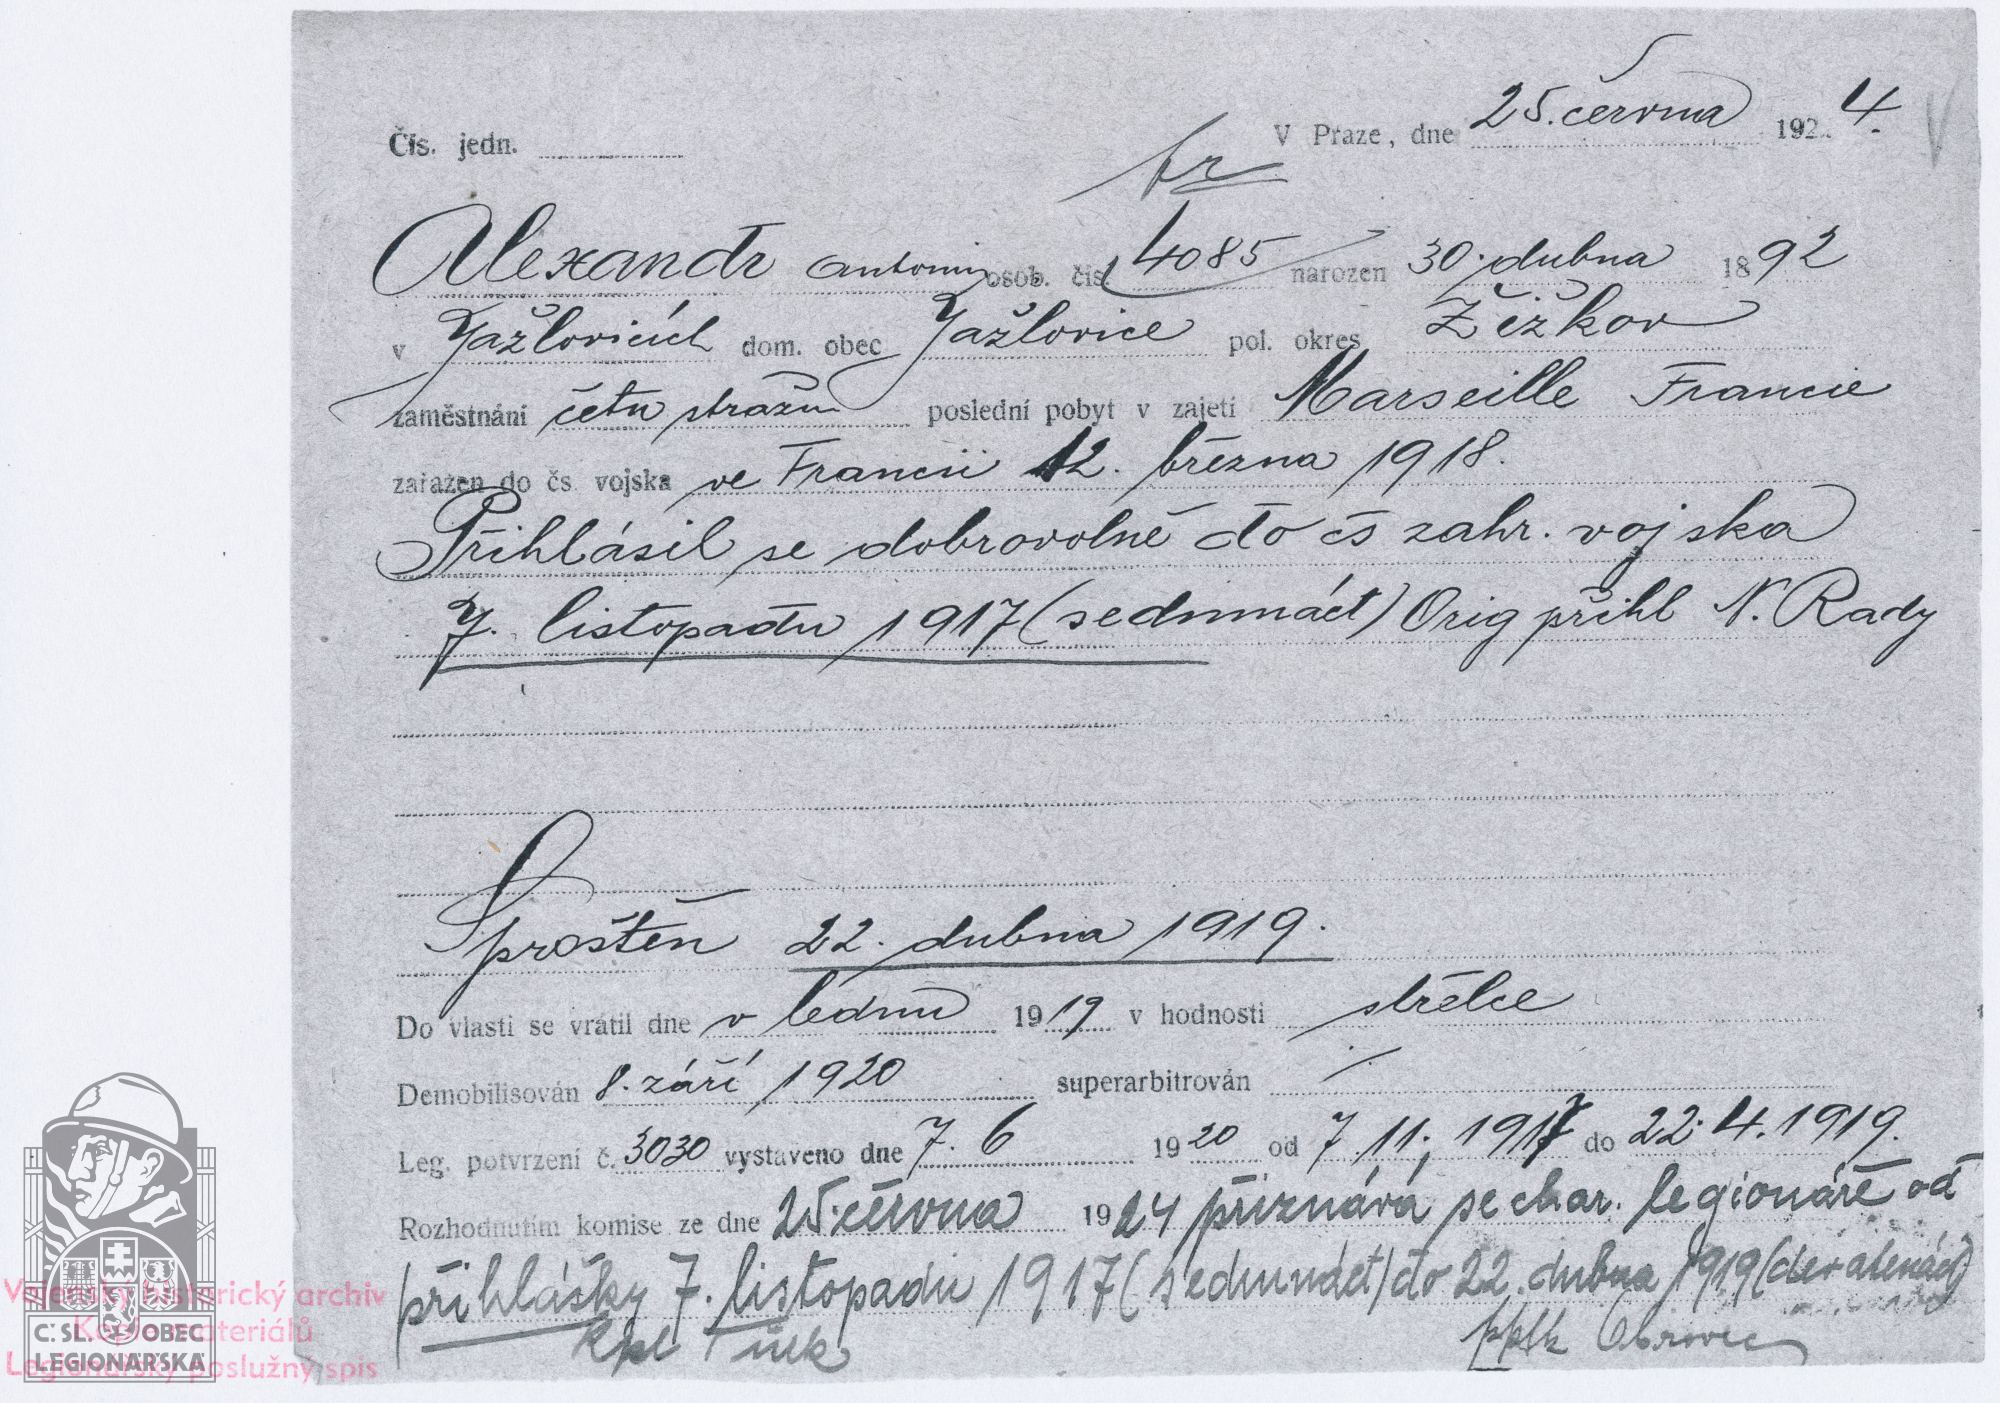 Čís. jedn. V Praze, dne 25. června 1924.
fr
Alexandr Antonin osob. čís. 4085 narozen 30. dubna 1892
v Jažlovicích dom. obec Jažlovice pol. okres Žižkov
zaměstnání četn strážm poslední pobyt v zajetí Marseille Francie
zařazen do čs. vojska ve Francii 12. března 1918.
Přihlásil se dobrovolně do čs zahr. vojska
7. listopadu 1917 (sedmnáct) Orig přihl N. Rady
Sproštěn 22. dubna 1919.
Do vlasti se vrátil dne v lednu 1919 v hodnosti střelce
Demobilisován 8. září 1920 superarbitrován /.
Leg. potvrzení č. 3030 vystaveno dne 7. 6 1920 od 7. 11. 1917 do 22. 4. 1919.
Rozhodnutím komise ze dne 25. června 1924 přiznává se char. legionáře od
přihlášky 7. listopadu 1917 (sedmnáct) do 22. dubna 1919 (devatenáct)
pplk
Vojenský historický archiv
Kopie materiálů
Legionářský poslužný spis
Č. SL. OBEC
LEGIONÁŘSKÁ